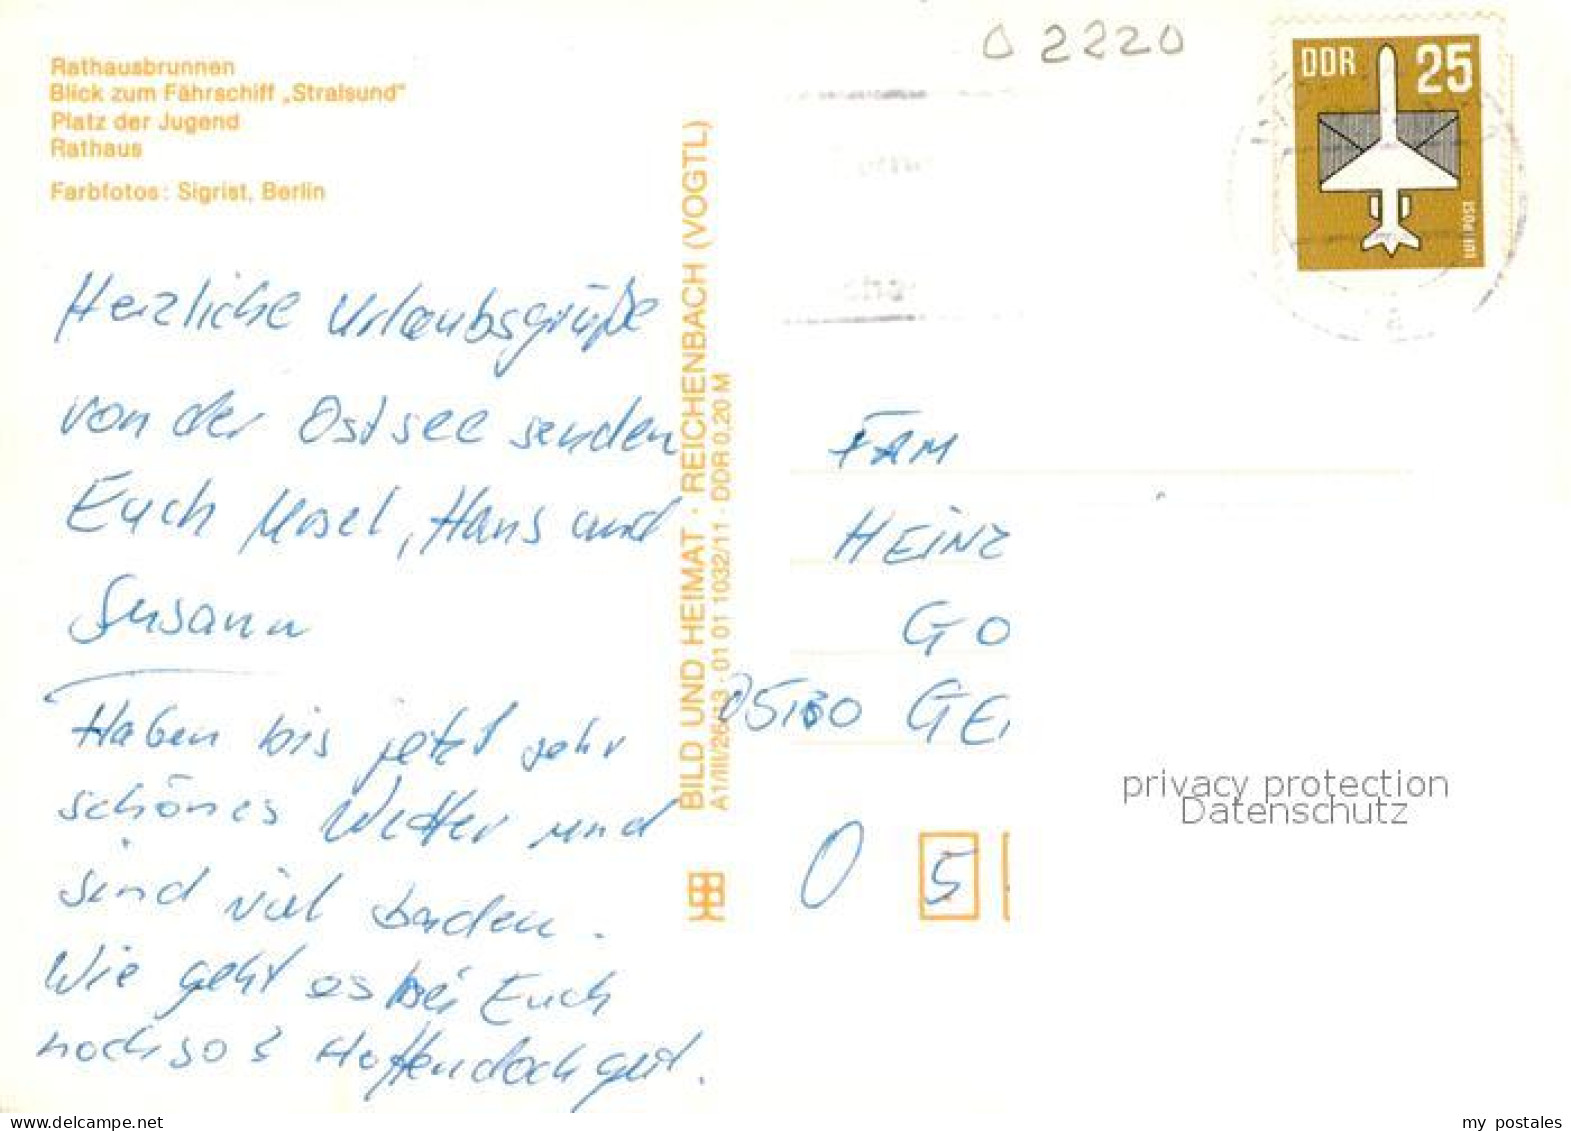 Rathausbrunnen
Blick zum Fährschiff „Stralsund"
Platz der Jugend
Rathaus
Farbfotos: Sigrist, Berlin
Herzliche Urlaubsgrüße
von der Ostsee senden
Euch Ursel, Hans und
Susann
Haben bis jetzt sehr
schönes Wetter und
sind viel baden.
Wie geht es bei Euch
noch so? Hoffen doch gut.
BILD UND HEIMAT · REICHENBACH (VOGTL)
01 01 1032/11 · DDR 0,20 M
O 2220
DDR 25
LUFTPOST
FAM
HEINZ
GO
GE
O 5
privacy protection
Datenschutz
www.delcampe.net
my_postales